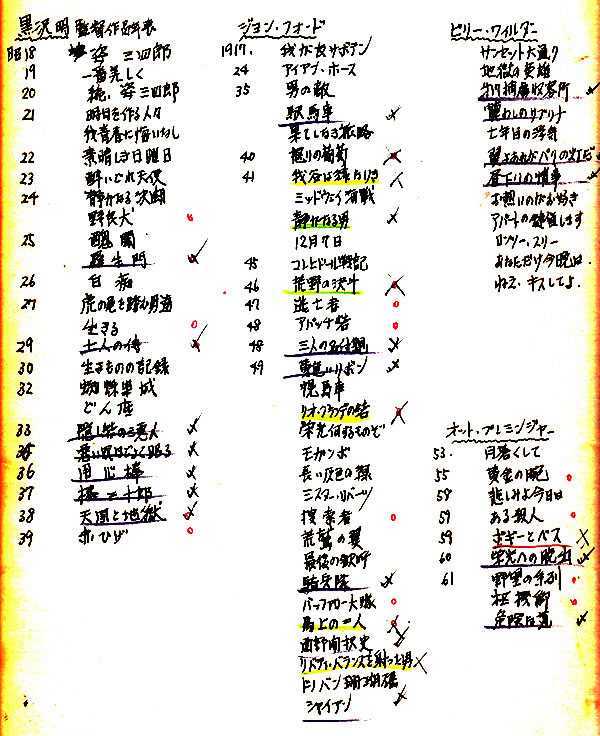 黒沢明 監督作品年表
昭18 姿 三四郎
19 一番美しく
20 続、姿三四郎
21 明日を作る人々
我青春に悔いなし
22 素晴しき日曜日
23 酔いどれ天使
24 静かなる決闘
野良犬
25 醜聞
羅生門
26 白痴
27 虎の尾を踏む男達
生きる
29 七人の侍
30 生きものの記録
32 蜘蛛巣城
どん底
33 隠し砦の三悪人
35 悪い奴ほどよく眠る
36 用心棒
37 椿三十郎
38 天国と地獄
39 赤ひげ
ジョン・フォード
1917.
24 アイアン・ホース
35 男の敵
駅馬車
果てしなき航路
40 怒りの葡萄
41 我が谷は緑なりき
ミッドウェイ海戦
静かなる男
12月7日
45 コレヒドール戦記
46 荒野の決斗
47 逃亡者
48 アパッチ砦
48 三人の名付親
49 黄色いリボン
幌馬車
リオ・グランデの砦
栄光何するものぞ
モガンボ
長い灰色の線
ミスター・ロバーツ
捜索者
荒鷲の翼
最後の歓呼
騎兵隊
バッファロー大隊
馬上の二人
西部開拓史
リバティ・バランスを射った男
ドノバン珊瑚礁
シャイアン
ビリー・ワイルダー
サンセット大通り
地獄の英雄
第17捕虜収容所
麗わしのサブリナ
七年目の浮気
翼よあれがパリの灯だ
昼下りの情事
お熱いのがお好き
アパートの鍵貸します
ワンツー・スリー
あなただけ今晩は
ねえ、キスしてよ
オットー・プレミンジャー
53. 月蒼くして
55 黄金の腕
58 悲しみよ今日は
59 ある殺人
59 ポギーとベス
60 栄光への脱出
61 野望の系列
枢機卿
危険な道